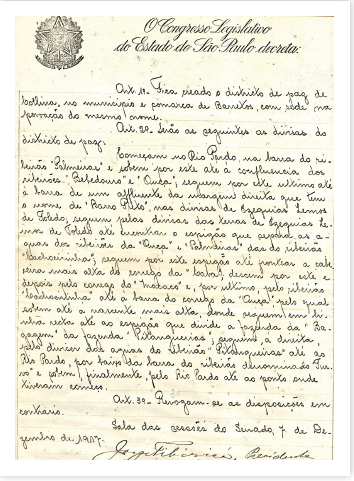 O Congresso Legislativo
do Estado de São Paulo decreta:
Art. 1º. Fica creado o districto de paz de
Collina, no municipio e comarca de Barretos, com séde na
povoação do mesmo nome.
Art. 2º. Serão as seguintes as divisas do
districto de paz:
Começam no Rio Pardo, na barra do ri-
beirão "Palmeiras" e sobem por este até a confluencia dos
ribeirões "Bebedouro" e "Onça"; seguem por este ultimo até
á barra de um affluente da margem direita que tem
o nome de "Barro Preto", nas divisas de Ezequias Lemos
de Toledo, seguem pelas divisas das terras de Ezequias Le-
mos de Toledo até encontrar o espigão que separa as a-
guas dos ribeirões da "Onça" e "Palmeiras" das do ribeirão
"Cachoeirinha"; seguem por este espigão até a cabe-
ceira mais alta do corrego da descem por este e
depois pelo corrego do "Macaco" e, por ultimo, pelo ribeirão
"Cachoeirinha" até á barra do corrego da "Onça" pelo qual
sobem até a nascente mais alta, donde seguem em li-
nha recta até ao espigão que divide a fazenda da "Ba-
gagem" da fazenda "Pitangueiras"; seguem, á direita,
pelo divisor das aguas do ribeirão "Pitangueiras" até ao
Rio Pardo, por baixo da barra do ribeirão denominado Tur-
vo" e sobem, finalmente, pelo Rio Pardo até ao ponto onde
tiveram começo.
Art. 3º. Revogam-se as disposições em
contrario.
Sala das sessões do Senado, 7 de De-
zembro de 1917.
Jorge Tibiriçá, Presidente